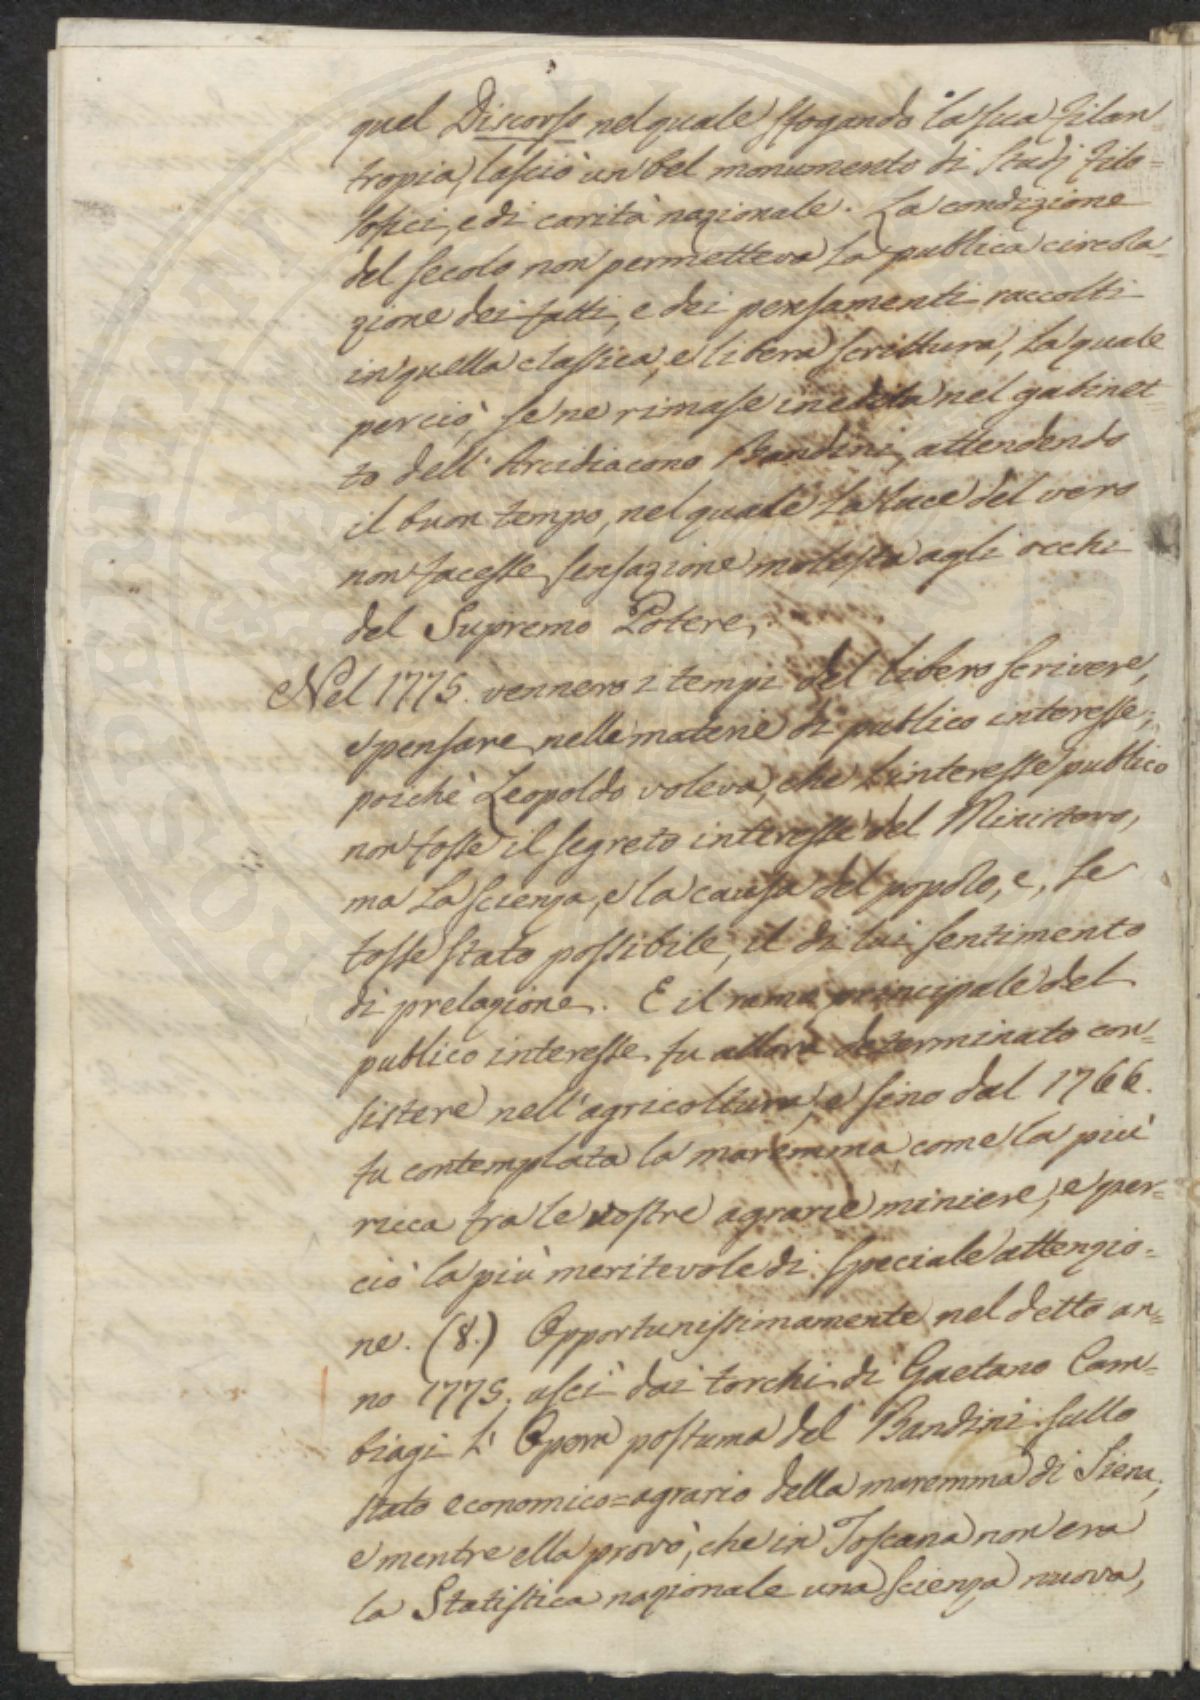 quel Discorso nel quale sfogando la sua Filan=
tropia, lasciò un bel monumento di Studj Filo=
sofici, e di carità nazionale. La condizione
del secolo non permetteva la publica circola=
zione dei fatti, e dei pensamenti raccolti
in quella classica, e libera scrittura, la quale
perciò se ne rimase inedita nel gabinet=
to dell'Arcidiacono Bandini, attendendo
il buon tempo, nel quale la luce del vero
non facesse sensazione molesta agli occhi
del Supremo Potere.
Nel 1775. vennero i tempi del libero scrivere,
e pensare nelle materie di publico interesse;
poichè Leopoldo voleva, che l'interesse publico
non fosse il segreto interesse del Ministero,
ma la scienza, e la causa del popolo, e, se
fosse stato possibile, il di lui sentimento
di prelazione. E il ramo principale del
publico interesse fu allora determinato con=
sistere nell'agricoltura, e sino dal 1766.
fu contemplata la maremma come la più
ricca fra le nostre agrarie miniere, e per=
ciò la più meritevole di speciale attenzio=
ne. (8.) Opportunissimamente nel detto an=
no 1775. uscì dai torchi di Gaetano Cam=
biagi l'Opera postuma del Bandini sullo
stato economico=agrario della maremma di Siena;
e mentre ella provò, che in Toscana non era
la Statistica nazionale una scienza nuova,
PROSPERITATI PUBLICAE